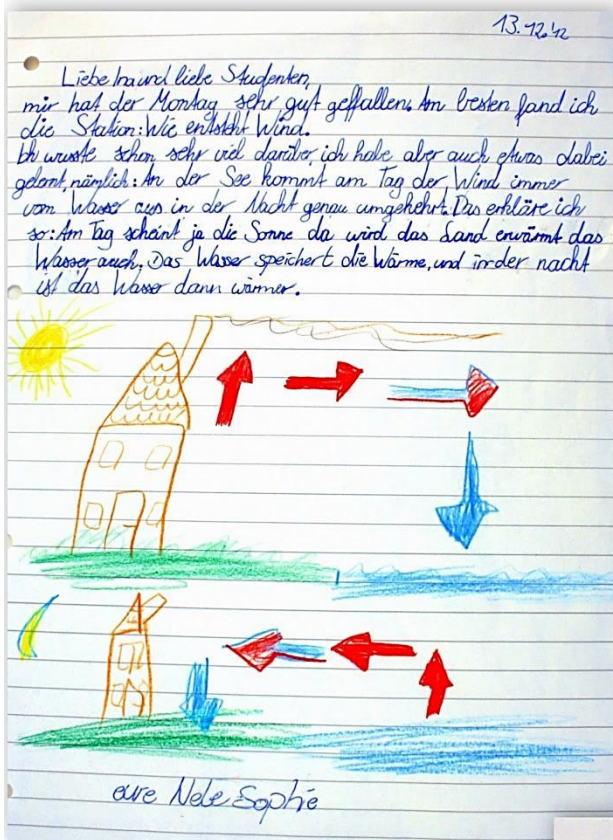 13.12.12
Liebe Ina und liebe Studenten,
mir hat der Montag sehr gut geffallen. Am besten fand ich
die Station: Wie entsteht Wind.
Ich wusste schon sehr viel darüber, ich habe aber auch etwas dabei
gelernt, nämlich: An der See kommt am Tag der Wind immer
vom Wasser aus in der Nacht genau umgekehrt. Das erkläre ich
so: Am Tag scheint ja die Sonne da wird das Land erwärmt das
Wasser auch. Das Wasser speichert die Wärme, und in der nacht
ist das Wasser dann wärmer.
eure Nele Sophie